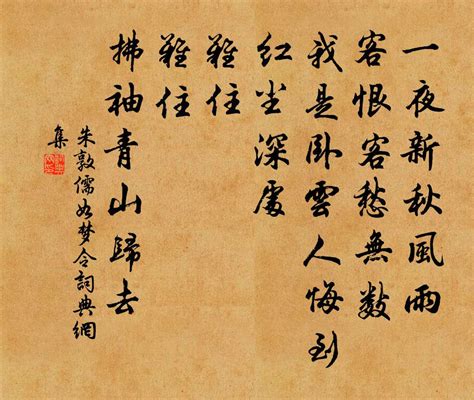 一夜新秋風雨
客恨客愁無數
我是卧雲人悔到
红尘深處
難住
難住
拂袖青山歸去
朱敦儒如梦令詞典網
集